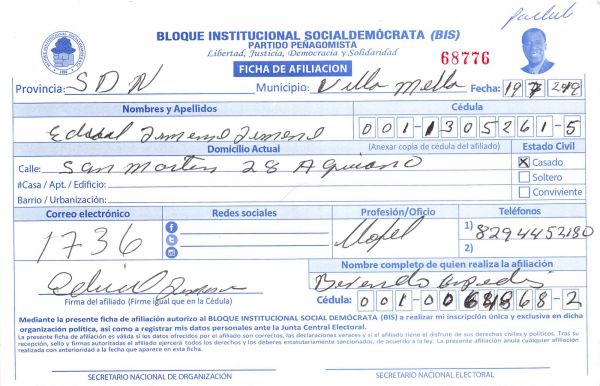 BLOQUE INSTITUCIONAL SOCIALDEMÓCRATA (BIS)
PARTIDO PEÑAGOMISTA
Libertad, Justicia, Democracia y Solidaridad
68776
FICHA DE AFILIACION
Provincia: SDN Municipio: Villa Mella Fecha:
Nombres y Apellidos Cédula
001-1305261-5
Domicilio Actual (Anexar copia de cédula del afiliado) Estado Civil
Calle: San Martin 28 X Casado
#Casa / Apt. / Edificio: Soltero
Barrio / Urbanización: Conviviente
Correo electrónico Redes sociales Profesión/Oficio Teléfonos
1736 1) 8294452180
2)
Nombre completo de quien realiza la afiliación
Firma del afiliado (Firme igual que en la Cédula) Cédula: 001-
Mediante la presente ficha de afiliación autorizo al BLOQUE INSTITUCIONAL SOCIAL DEMÓCRATA (BIS) a realizar mi inscripción única y exclusiva en dicha
organización política, así como a registrar mis datos personales ante la Junta Central Electoral.
La presente ficha de afiliación es válida si los datos ofrecidos por el afiliado son correctos, las declaraciones veraces y si el afiliado tiene el disfrute de sus derechos civiles y políticos. Tras su
recepción, sello y firmas autorizadas el afiliado ejercerá todos los derechos y los deberes estatutariamente sancionados, de acuerdo a la ley. La presente afiliación anula cualquier afiliación
realizada con anterioridad a la fecha que aparece en esta ficha.
SECRETARIO NACIONAL DE ORGANIZACIÓN SECRETARIO NACIONAL ELECTORAL